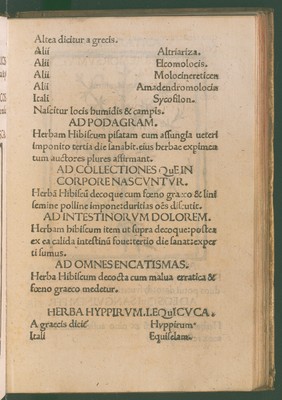 Altea dicitur a grecis.
Alii Altriariza.
Alii Elcomolocis.
Alii Molocinereticen
Alii Amadendromolocia
Itali Sycofilon.
Nascitur locis humidis & campis.
AD PODAGRAM.
Herbam Hibiscum pisatam cum assungia ueteri
imponito tertia die sanabit. eius herbae expimenm
tum auctores plures affirmant.
AD COLLECTIONES QuE IN
CORPORE NASCVNTVR.
Herbã Hibiscũ decoque cum fœno græco & lini
semine polline impone: duritias oẽs discutit.
AD INTESTINORVM DOLOREM.
Herbam hibiscum item ut supra decoque: postea
ex ea calida intestinũ foue: tertio die sanat: exper
ti sumus.
AD OMNES ENCATISMAS.
Herba Hibiscum decocta cum malua erratica &
fœno graeco medetur.
HERBA HYPPIRVM. I. EQuICVCA.
A graecis dicit Hyppirum
Itali Equiselam.